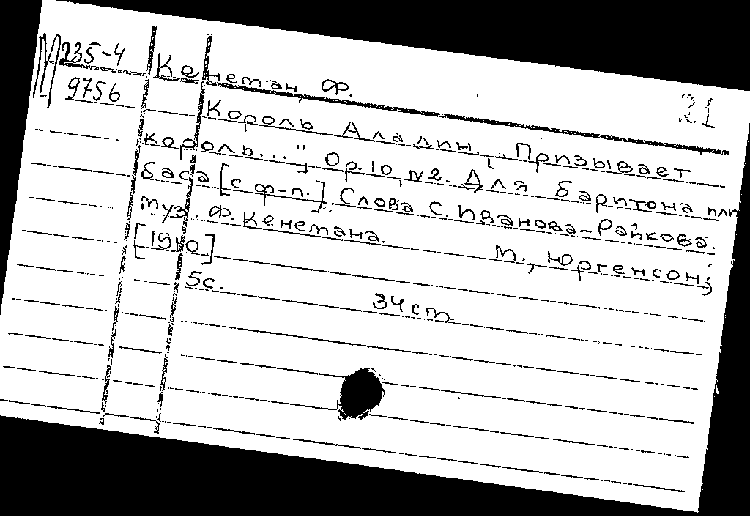 М 235-4
9756
Кенеман, Ф.
21
Король Аладин. „Призывает
король...", Ор.10, №2. Для баритона или
баса [с ф-п.]. Слова С. Иванова-Райкова.
Муз. Ф. Кенемана. М., Юргенсон,
[1910]
5с. 34 см